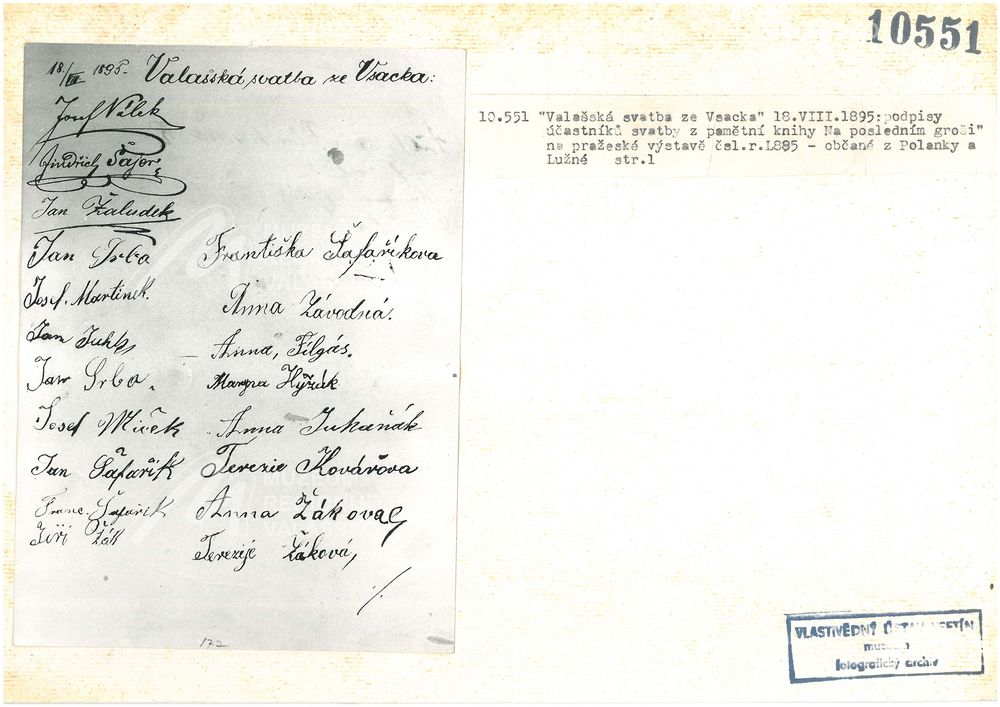 10551
18./VIII 1895. Valašská svatba ze Vsacka:
Josef Válek
Jindřich Šajer
Jan Žaludek
Jan Srba Františka Šafaříkova
Josef. Martinek. Anna Závodná.
Jan Anna, Filgás.
Jan Srba. Maryna Hyžák
Josef Mičěk Anna Juhaňák
Jan Šafařik Terezie Kovářova
Franc. Šafařik Anna Žákova
Jiří Žák Terezije Žáková,
172
10.551 "Valašská svatba ze Vsacka" 18.VIII.1895:podpisy
účastníků svatby z pamětní knihy Na posledním groši"
na pražeské výstavě čsl.r.1895 - občané z Polanky a
Lužné str.1
VLASTIVĚDNÝ ÚSTAV VSETÍN
muzeum
fotografický archiv